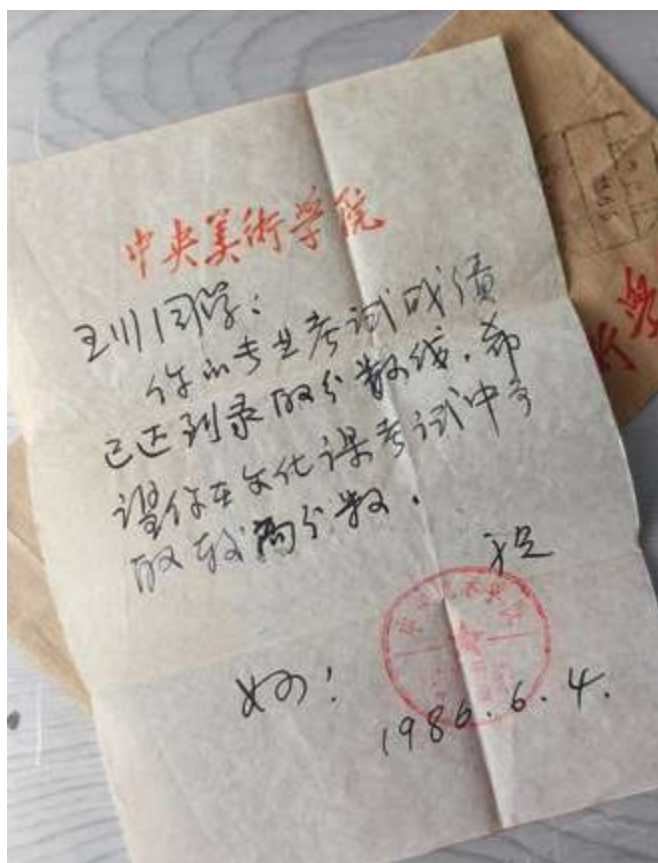 中央美術学院
王川同学：
你的专业考试成绩
已达到录取分数线。希
望你在文化课考试中争
取较高分数。
祝
好！
1986.6.4.